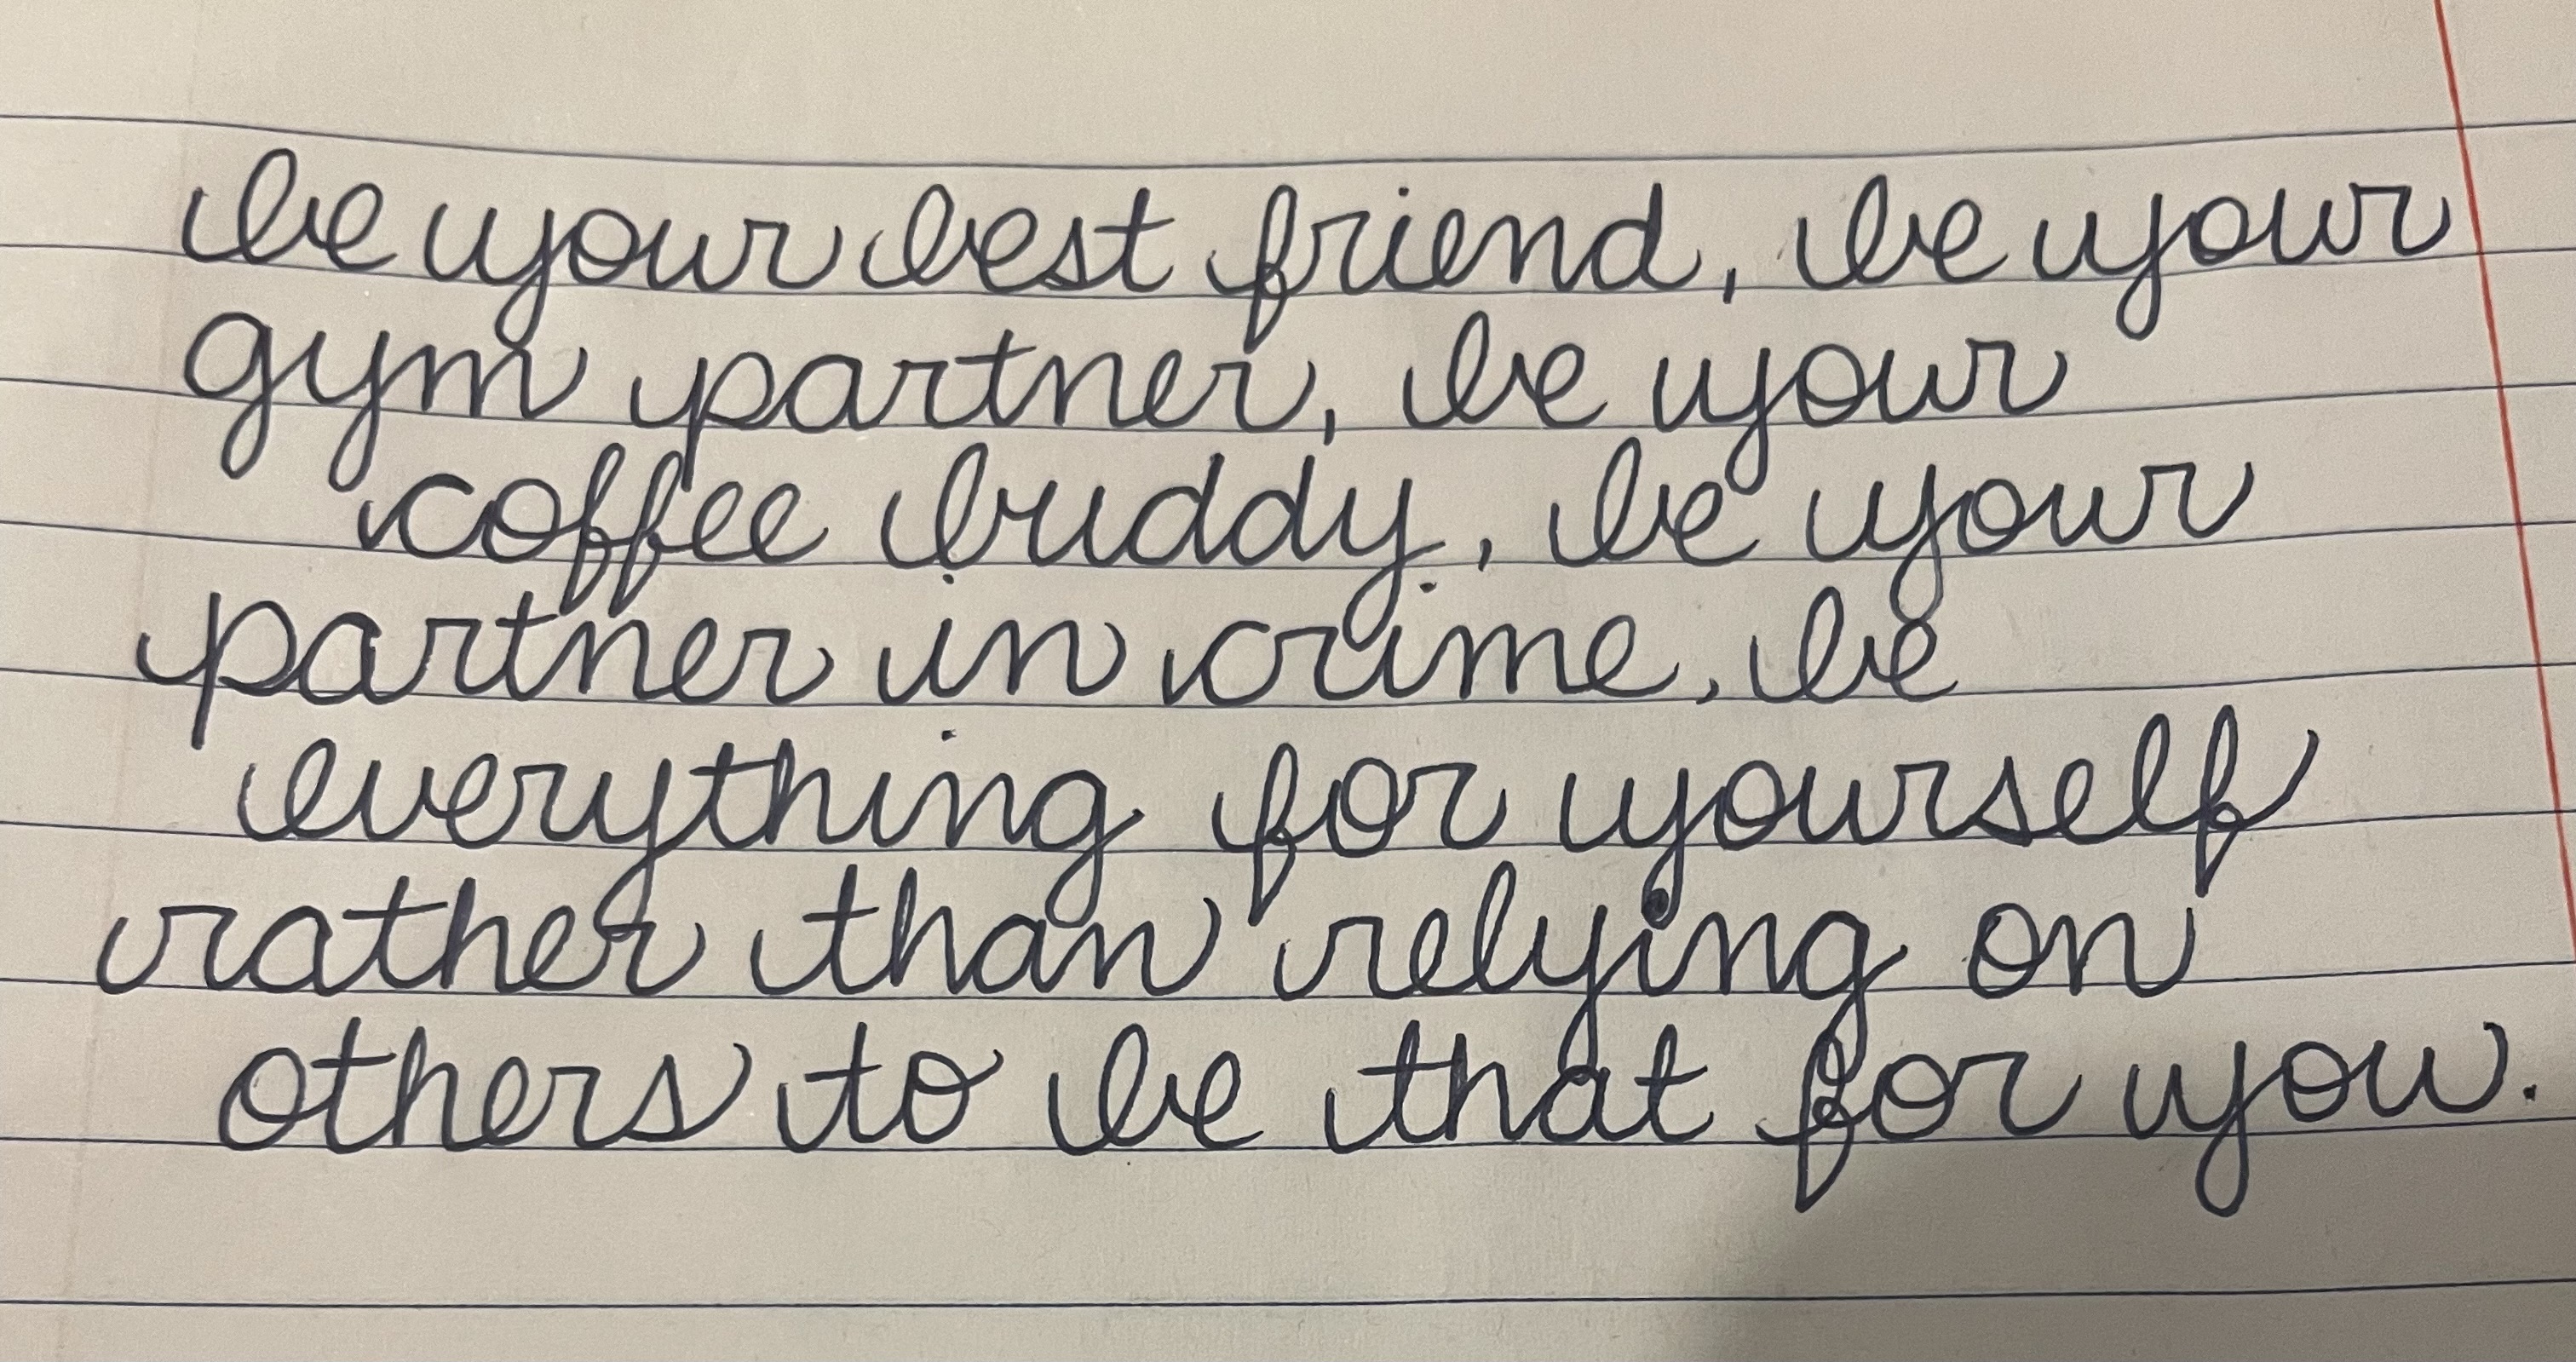 be your best friend, be your
gym partner, be your
coffee buddy, be your
partner in crime, be
everything for yourself
rather than relying on
others to be that for you.